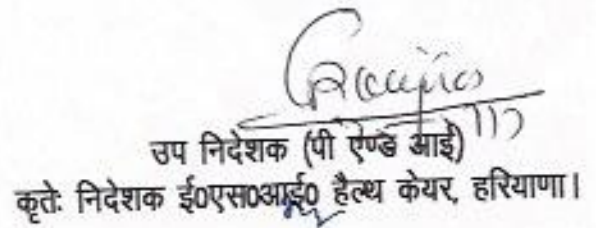 उप निदेशक (पी एण्ड आई)
कृतेः निदेशक ई0एस0आई0 हैल्थ केयर, हरियाणा।